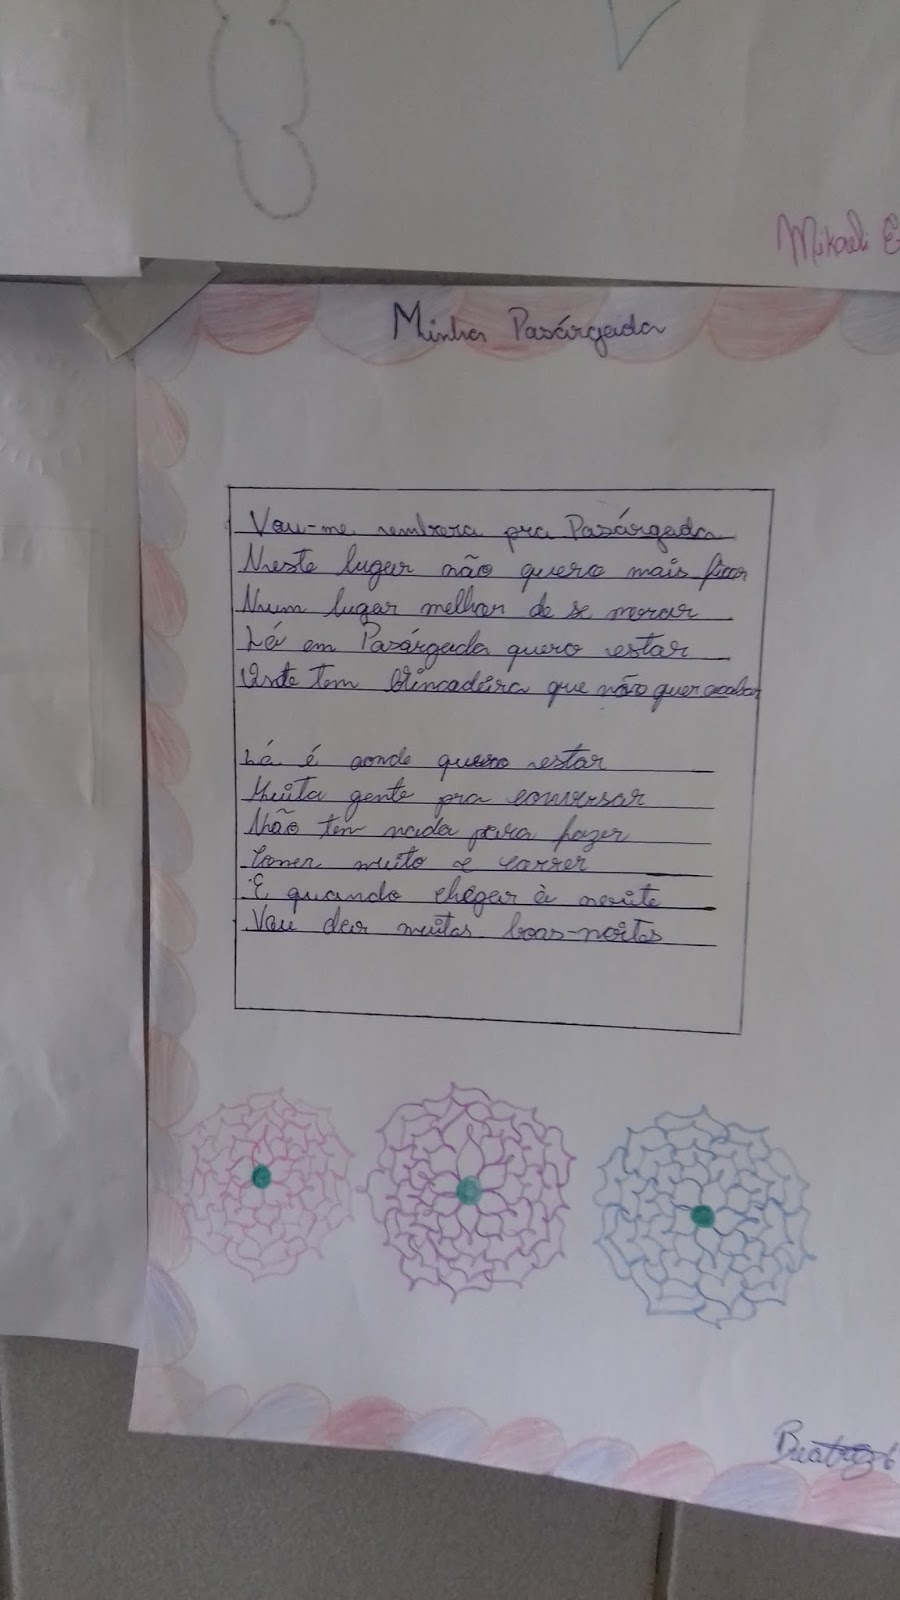 Mikaeli E
Minha Pasárgada
Vou-me embora pra Pasárgada
Neste lugar não quero mais ficar
Num lugar melhor de se morar
Lá em Pasárgada quero estar
Onde tem brincadeira que não quer acabar
Lá é aonde quero estar
Muita gente pra conversar
Não tem nada para fazer
Comer muito e correr
E quando chegar à noite
Vou dar muitas boas-noites
Beatriz